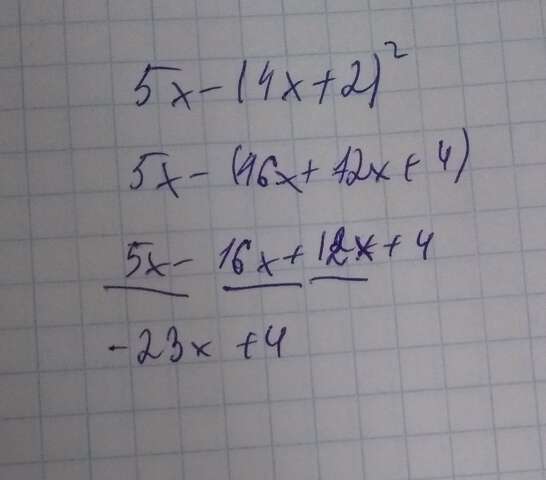 5x-(4x+2)²
5x-(16x+12x+4)
5x-16x+12x+4
-23x+4